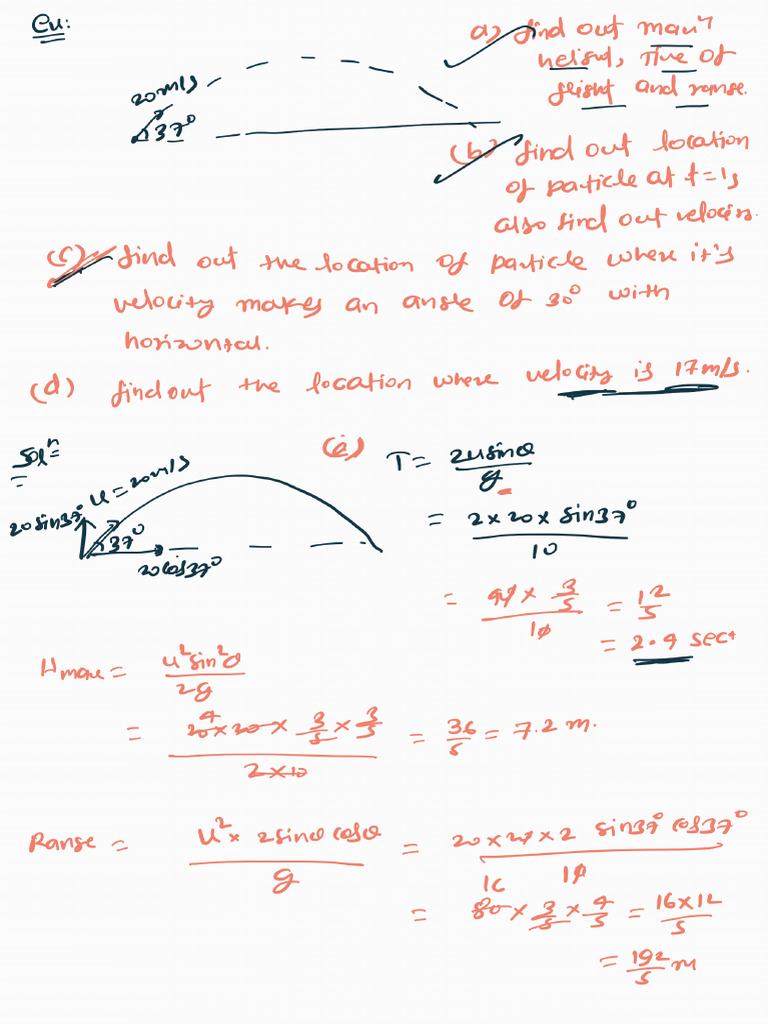 Eu:
a) find out maxm
height, time of
flight and range.
20m/s
37°
(b) find out location
of particle at t=1s
also find out velocity.
(c) find out the location of particle where it's
velocity makes an angle of 30° with
horizontal.
(d) find out the location where velocity is 17m/s.
Soln
(a)
u=20m/s
20sin37°
37°
20cos37°
T = 2usinθ / g
= 2×20×sin37° / 10
= 40 × 3/5 / 10 = 12/5
= 2.4 sec
Hmax = u²sin²θ / 2g
= 20×20×3/5×3/5 / 2×10 = 36/5 = 7.2 m.
4
Range = u²× 2sinθ cosθ / g = 20×20×2 sin37° cos37° / 10
16
= 80 × 3/5 × 4/5 = 16×12 / 5
= 192/5 m